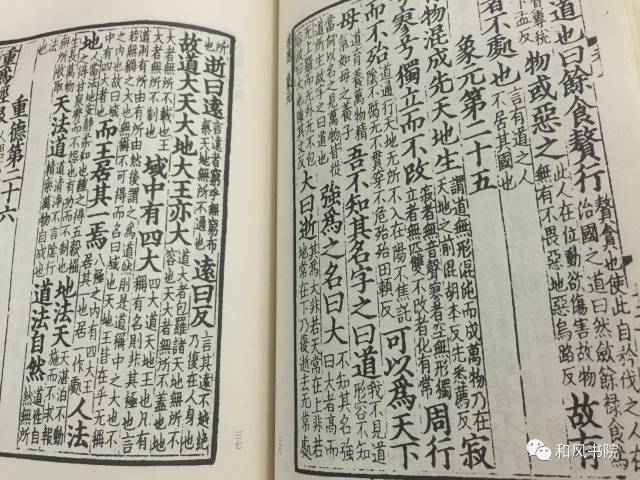 道也曰餘食贅行
物或惡之 此人在位動欲傷害故物無有不畏惡也惡烏路反 故有
者不處也 言有道之人不居其國也
象元第二十五
物混成先天地生 謂道無形混沌而成萬物乃在天地之前混胡本反先悉薦反 寂
寥兮獨立而不改 寂者無音聲寥者空無形獨立者無匹雙不改者化有常 周行
而不殆 道通行天地無所不入在陽不焦託陰不腐無不貫穿不危殆殆田賴反 可以爲天下
母 道育養萬物精氣如母之養子 吾不知其名字之曰道 我不見道形容不知
當何以名之見萬物皆從道所生故字之曰道 強爲之名曰大 不知其名強曰大者高而
大曰逝 其爲大非若天常在上非若地常在下乃復逝去無常處
所也 逝曰遠 言遠者窮乎無窮布炁天地無所不通也 遠曰反 言其遠不越絕乃復在人身也
故道大天大地大王亦大 道大者包羅諸天地無所不容也天大者無所不蓋也地
大者無所不載也王大者無所不制也 域中有四大 四大道天地王也凡有稱有名則非其極也言
道則有所由有所由然後謂之爲道然則是道稱中之大也不若無稱之大也無稱不可得而名曰域也天地王皆在乎無稱
之內也故曰域中有四大者也 而王居其一焉 八極之內有四大王居其一也 人法
地 人當法地安靜柔和也種之得五穀掘之得甘泉勞而不怨也有功而不制也 地法天 天湛泊不動施而不求報
生長萬物無所收取 天法道 道清淨不言陰行精氣萬物自成也 道法自然 道性自然無所
重德第二十六
重爲輕根
三七
和风书院